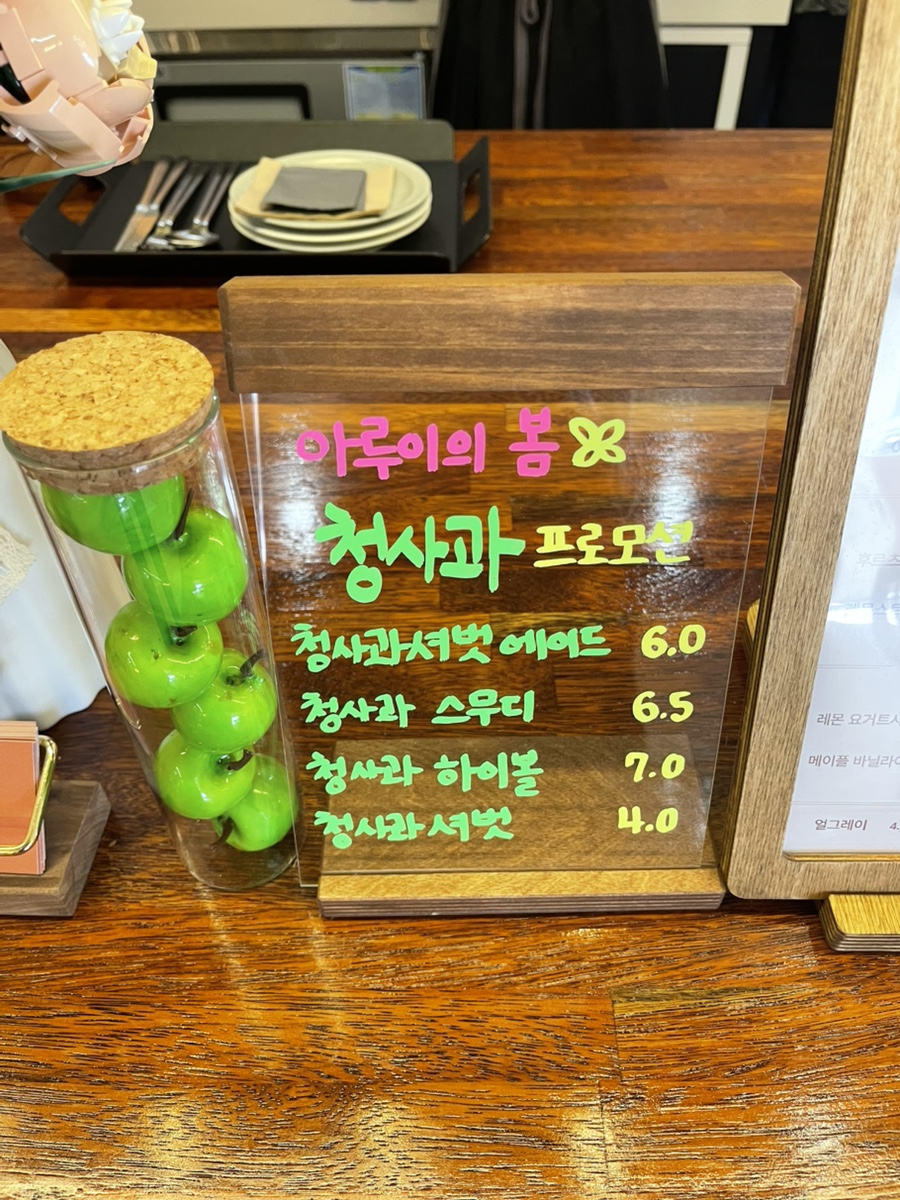 아루이의 봄
청사과 프로모션
청사과셔벗 에이드 6.0
청사과 스무디 6.5
청사과 하이볼 7.0
청사과셔벗 4.0
후르츠
레몬 요거트
메이플 바닐라
얼그레이 4.